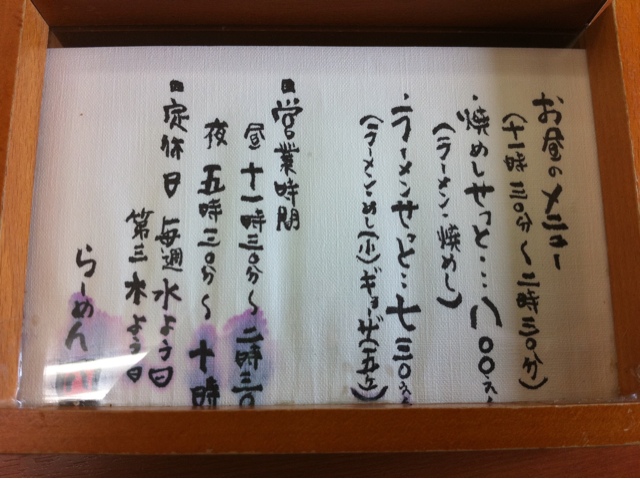 お昼のメニュー
(十一時三〇分〜二時三〇分)
・焼めしせっと・・・八〇〇
(ラーメン・焼めし)
・ラーメンせっと・・・七三〇
(ラーメン・めし(小)ギョーザ(五ヶ))
■営業時間
昼 十一時三〇分〜二時三〇
夜 五時三〇分〜十時
■定休日 毎週水よう日
第三木よう日
らーめん